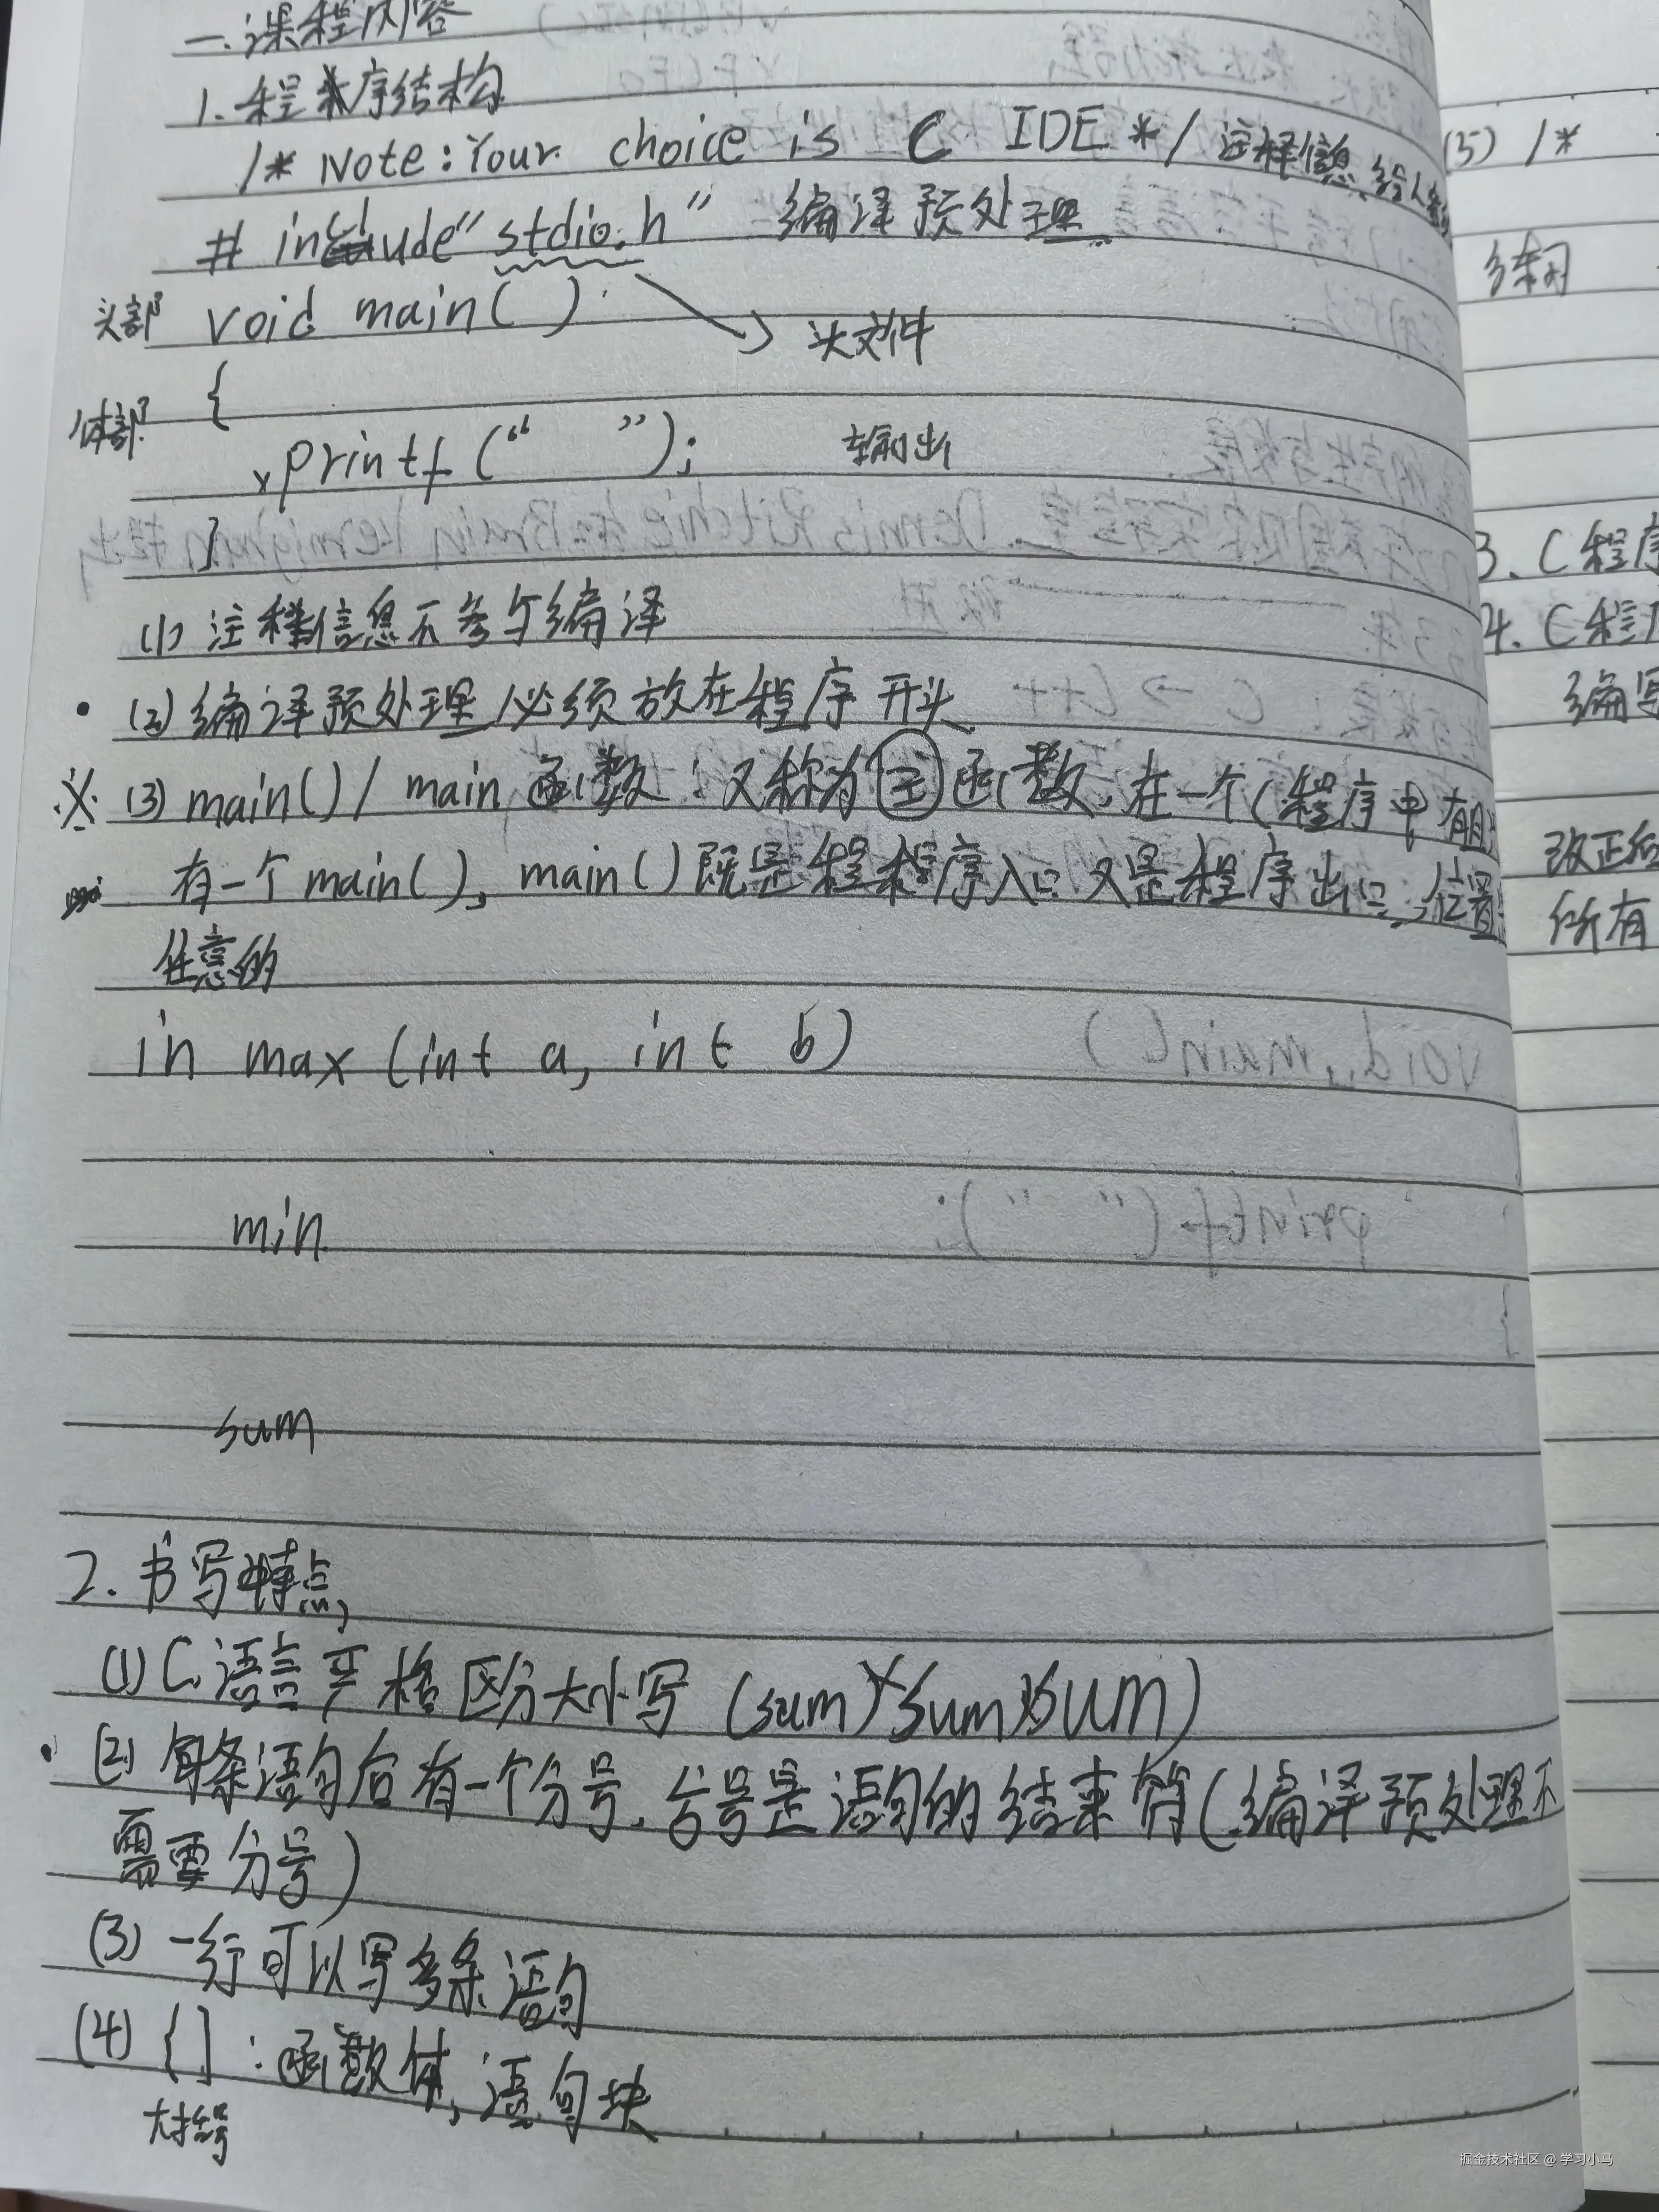 一.课程内容
1.程序结构
/* Note:Your choice is C IDE */ 注释信息,给人
# include"stdio.h" 编译预处理
头部 void main()
头文件
体部 {
printf(“ ”); 输出
}
(1) 注释信息不参与编译
(2) 编译预处理必须放在程序开头
※ (3) main()/ main函数:又称为主函数,在一个(程序中有且
有一个main(),main()既是程序入口又是程序出口,位置
任意的
in max (int a, int b)
min
sum
2.书写特点
(1) C语言严格区分大小写 (sum)×Sum×SUM)
(2) 每条语句后有一个分号,分号是语句的结束符(编译预处理不
需要分号)
(3) 一行可以写多条语句
(4) {}:函数体,语句块
大括号
(5) /*
3. C程序
4. C程序
编写
改正后
所有
掘金技术社区 @ 学习小马